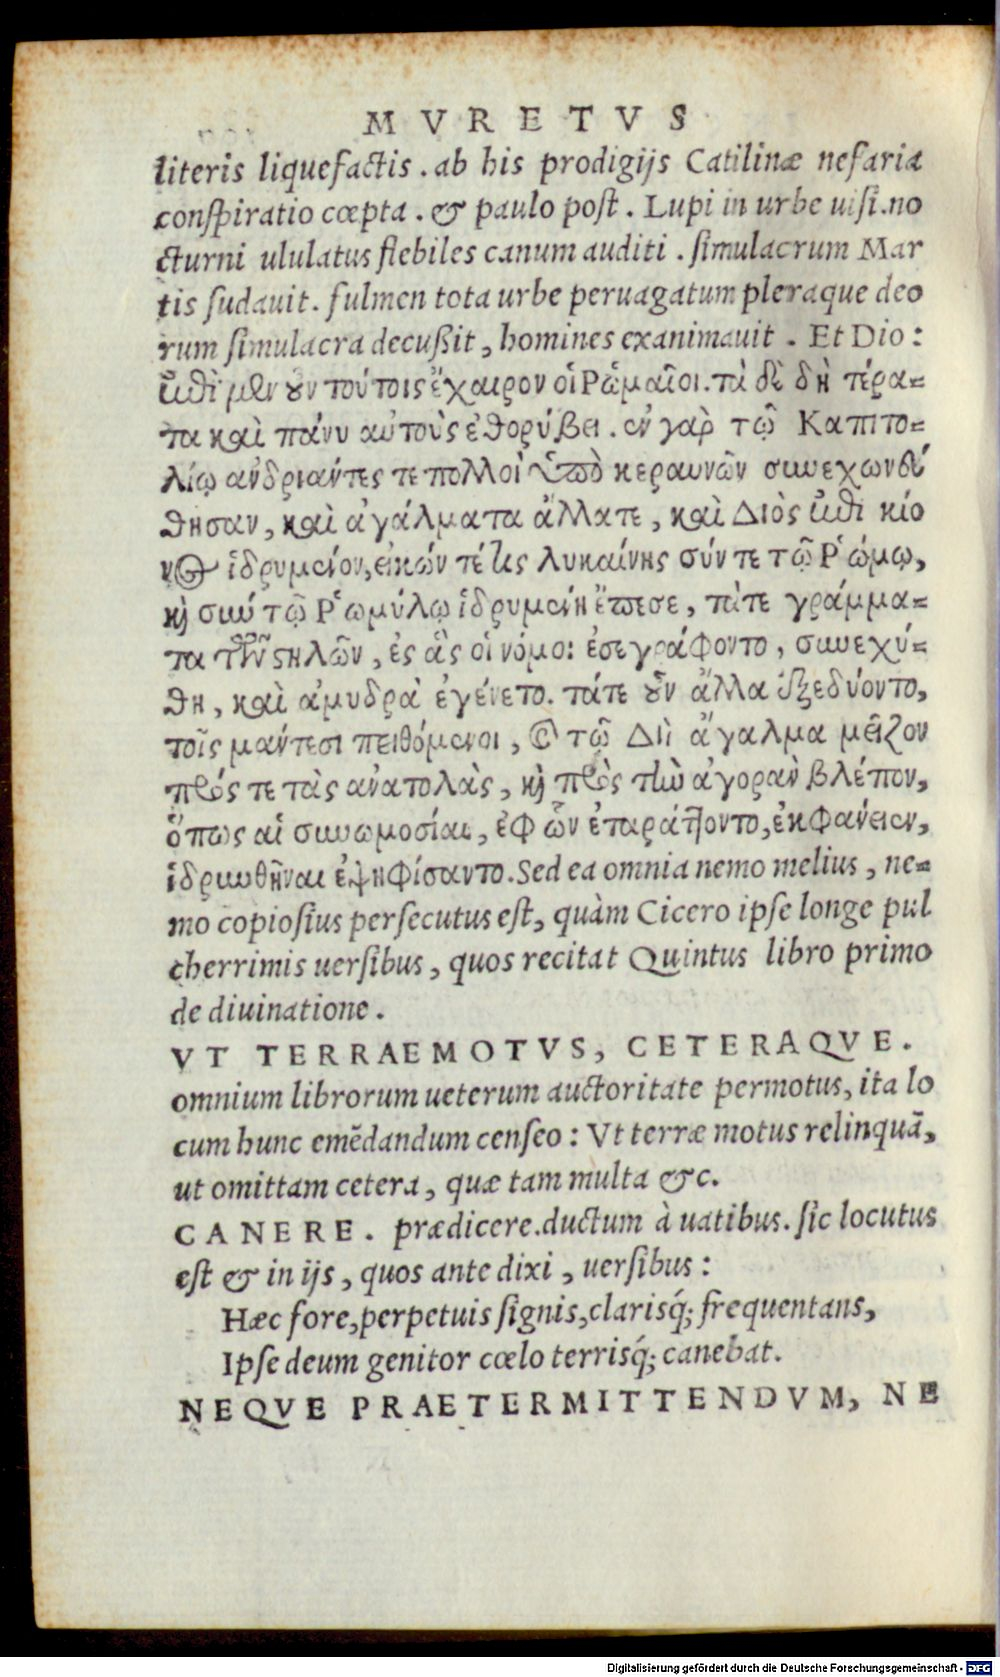 MVRETVS
literis liquefactis. ab his prodigijs Catilinæ nefaria
conspiratio cœpta. & paulo post. Lupi in urbe uisi. no
cturni ululatus flebiles canum auditi. simulacrum Mar
tis sudauit. fulmen tota urbe peruagatum pleraque deo
rum simulacra decußit, homines exanimauit. Et Dio:
ἐπὶ μὲν οὖν τούτοις ἔχαιρον οἱ Ῥωμαῖοι. τὰ δὲ δὴ τέρα=
τα καὶ πάνυ αὐτοὺς ἐθορύβει. ἐν γὰρ τῷ Καπιτο=
λίῳ ἀνδριάντες τε πολλοὶ ὑπὸ κεραυνῶν συνεχωνεύ
θησαν, καὶ ἀγάλματα ἄλλα τε, καὶ Διὸς ἐπὶ κίο
νος ἱδρυμένον, εἰκών τέ τις λυκαίνης σύν τε τῷ Ῥώμῳ,
καὶ σὺν τῷ Ῥωμύλῳ ἱδρυμένη ἔπεσε, τάτε γράμμα=
τα τῶν στηλῶν, ἐς ἃς οἱ νόμοι ἐσεγράφοντο, συνεχύ=
θη, καὶ ἀμυδρὰ ἐγένετο. τάτε οὖν ἄλλα ἐξεδύοντο,
τοῖς μάντεσι πειθόμενοι, καὶ τῷ Διὶ ἄγαλμα μεῖζον
πρός τε τὰς ἀνατολὰς, καὶ πρὸς τὴν ἀγορὰν βλέπον,
ὅπως αἱ συνωμοσίαι, ἐφ ὧν ἐταράττοντο, ἐκφανεῖεν,
ἱδρυνθῆναι ἐψηφίσαντο. Sed ea omnia nemo melius, ne=
mo copiosius persecutus est, quàm Cicero ipse longe pul
cherrimis uersibus, quos recitat Quintus libro primo
de diuinatione.
VT TERRAEMOTVS, CETERAQVE.
omnium librorum ueterum auctoritate permotus, ita lo
cum hunc emēdandum censeo: Vt terræ motus relinquā,
ut omittam cetera, quæ tam multa &c.
CANERE. prædicere. ductum à uatibus. sic locutus
est & in ijs, quos ante dixi, uersibus:
Hæc fore, perpetuis signis, clarisq́; frequentans,
Ipse deum genitor cœlo terrisq́; canebat.
NEQVE PRAETERMITTENDVM, NE
Digitalisierung gefördert durch die Deutsche Forschungsgemeinschaft - DFG